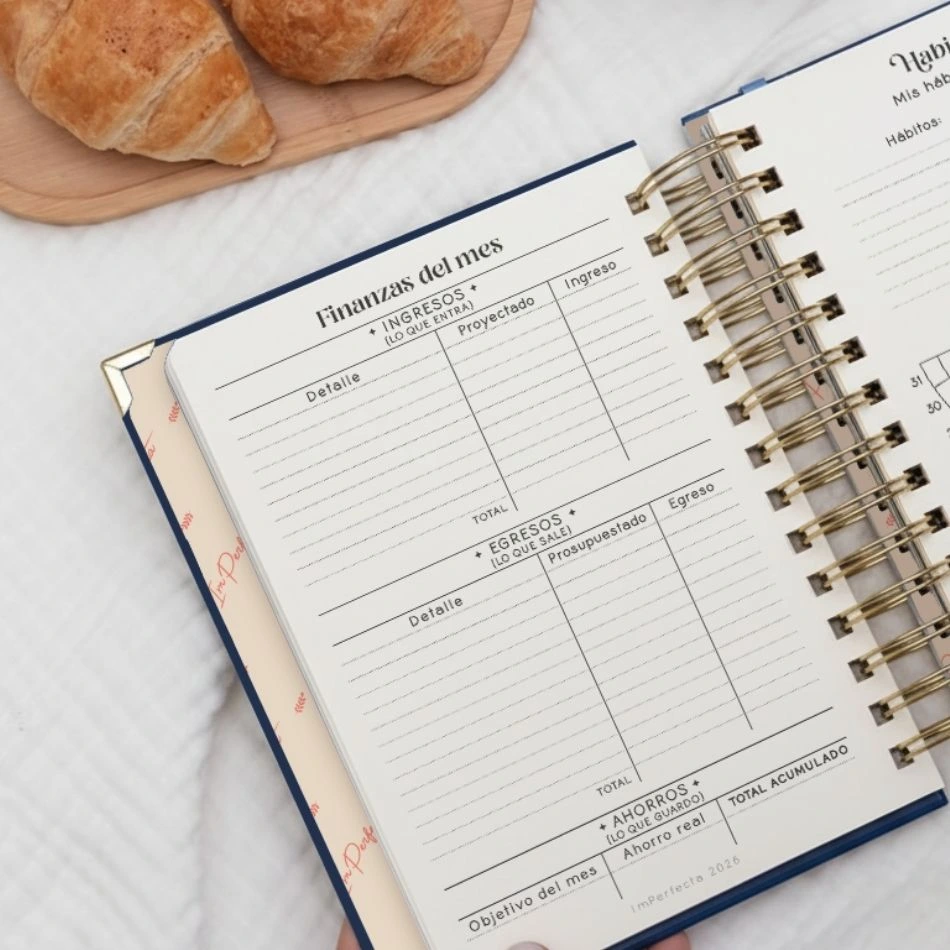 Finanzas del mes
✦ INGRESOS ✦
(LO QUE ENTRA)
Detalle Proyectado Ingreso
TOTAL
✦ EGRESOS ✦
(LO QUE SALE)
Detalle Prosupuestado Egreso
TOTAL
✦ AHORROS ✦
(LO QUE GUARDO)
Objetivo del mes Ahorro real TOTAL ACUMULADO
ImPerfecta 2026
Hábitos:
31
30